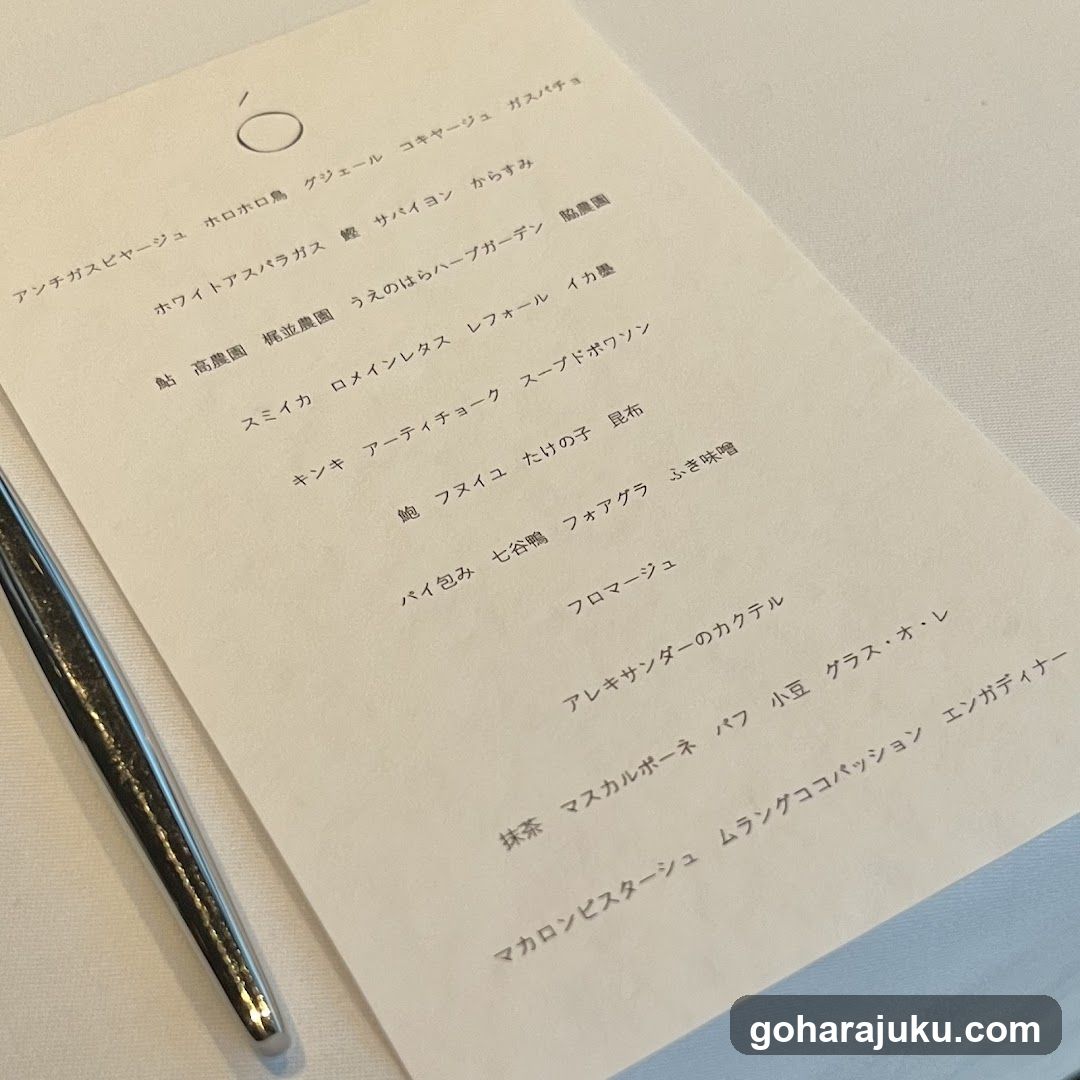 アンチガスピヤージュ　ホロホロ鳥　グジェール　コキヤージュ　ガスパチョ
ホワイトアスパラガス　鰹　サバイヨン　からすみ
鮎　高農園　梶並農園　うえのはらハーブガーデン　脇農園
スミイカ　ロメインレタス　レフォール　イカ墨
キンキ　アーティチョーク　スープドポワソン
鮑　フヌイユ　たけの子　昆布
パイ包み　七谷鴨　フォアグラ　ふき味噌
フロマージュ
アレキサンダーのカクテル
抹茶　マスカルポーネ　パフ　小豆　グラス・オ・レ
マカロンピスターシュ　ムラングココパッション　エンガディナー
goharajuku.com